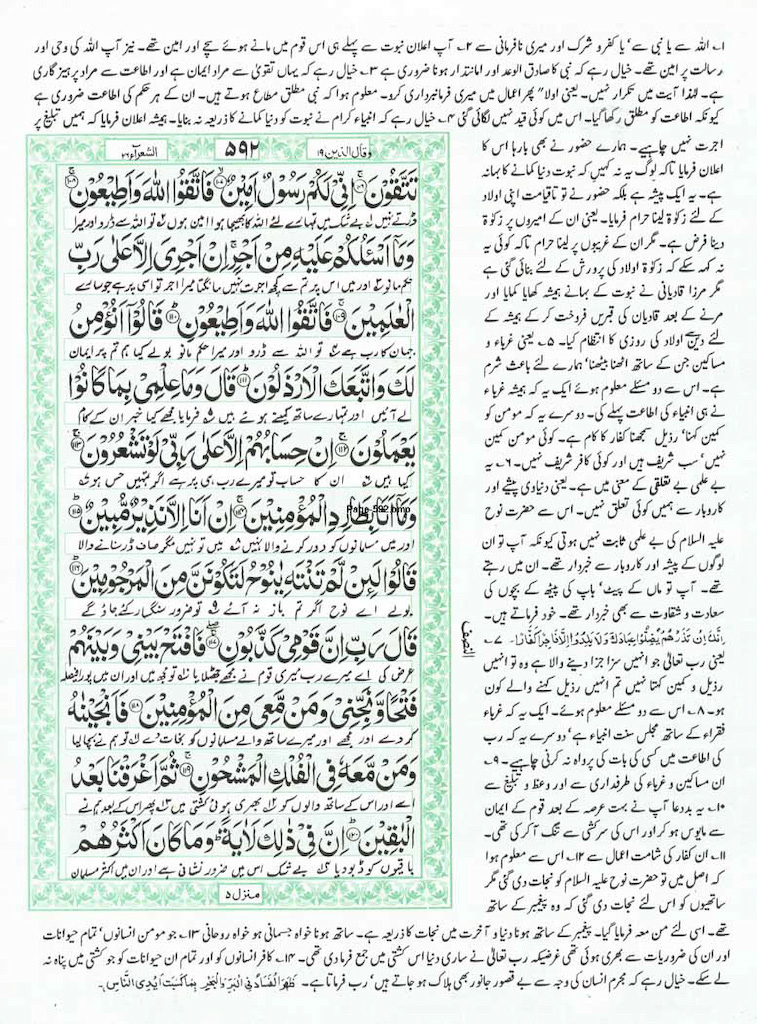 ۱۔ اللہ سے یا نبی سے' یا کفرو شرک اور میری نافرمانی سے ۲۔ آپ اعلان نبوت سے پہلے ہی اس قوم میں مانے ہوئے سچے اور امین تھے۔ نیز آپ اللہ کی وحی اور
رسالت پر امین تھے۔ خیال رہے کہ نبی کا صادق الوعد اور امانتدار ہونا ضروری ہے ۳۔ خیال رہے کہ یہاں تقویٰ سے مراد ایمان ہے اور اطاعت سے مراد پرہیز گاری
ہے۔ لہذا آیت میں تکرار نہیں۔ یعنی اولا" پھر اعمال میں میری فرمانبرداری کرو۔ معلوم ہوا کہ نبی مطلق مطاع ہوتے ہیں۔ ان کے ہر حکم کی اطاعت ضروری ہے
کیونکہ اطاعت کو مطلق رکھا گیا۔ اس میں کوئی قید نہیں لگائی گئی ۴۔ خیال رہے کہ انبیاء کرام نے نبوت کو دنیا کمانے کا ذریعہ نہ بنایا۔ ہمیشہ اعلان فرمایا کہ ہمیں تبلیغ پر
اجرت نہیں چاہیے۔ ہمارے حضور نے بھی بارہا اس کا
اعلان فرمایا تاکہ لوگ یہ نہ کہیں کہ نبوت دنیا کمانے کا بہانہ
ہے۔ یہ ایک پیشہ ہے بلکہ حضور نے تو تاقیامت اپنی اولاد
کے لئے زکوٰۃ لینا حرام فرمایا۔ یعنی ان کے امیروں پر زکوٰۃ
دینا فرض ہے۔ مگر ان کے غریبوں پر لینا حرام تاکہ کوئی یہ
نہ کہہ سکے کہ زکوٰۃ اولاد کی پرورش کے لئے بنائی گئی ہے
مگر مرزا قادیانی نے نبوت کے بہانے ہمیشہ کھایا کمایا اور
مرنے کے بعد قادیان کی قبریں فروخت کر کے ہمیشہ کے
لئے اولاد کی روزی کا انتظام کیا۔ ۵۔ یعنی غرباء و
مساکین جن کے ساتھ اٹھنا بیٹھنا' ہمارے لئے باعث شرم
ہے۔ اس سے دو مسئلے معلوم ہوئے ایک یہ کہ ہمیشہ غرباء
نے ہی انبیاء کی اطاعت پہلے کی۔ دوسرے یہ کہ مومن کو
کمین کہنا' رذیل سمجھنا کفار کا کام ہے۔ کوئی مومن کمین
نہیں' سب شریف ہیں اور کوئی کافر شریف نہیں۔ ۶۔ یہ
بے علمی بے تعلقی کے معنی میں ہے۔ یعنی دنیاوی پیشے اور
کاروبار سے ہمیں کوئی تعلق نہیں۔ اس سے حضرت نوح
علیہ السلام کی بے علمی ثابت نہیں ہوتی کیونکہ آپ تو ان
لوگوں کے پیشہ اور کاروبار سے خبردار تھے۔ ان میں رہتے
تھے۔ آپ تو ماں کے پیٹ' باپ کی پیٹھ کے بچوں کی
سعادت و شقاوت سے بھی خبردار تھے۔ خود فرماتے ہیں۔
اِنَّكَ اِنْ تَذَرْهُمْ يُضِلُّوْا عِبَادَكَ وَلَا يَلِدُوْٓا اِلَّا فَاجِرًا كَفَّارًا۔ ۷۔
یعنی رب تعالیٰ جو انہیں سزا جزا دینے والا ہے وہ تو انہیں
رذیل و کمین کہتا نہیں تم انہیں رذیل کہنے والے کون
ہو۔ ۸۔ اس سے دو مسئلے معلوم ہوئے۔ ایک یہ کہ غرباء
فقراء کے ساتھ مجلس سنت انبیاء ہے' دوسرے یہ کہ رب
کی اطاعت میں کسی کی بات کی پرواہ نہ کرنی چاہیے۔ ۹۔
ان مساکین و غرباء کی طرفداری سے اور وعظ و تبلیغ سے
۱۰۔ یہ بددعا آپ نے بہت عرصہ کے بعد قوم کے ایمان
سے مایوس ہو کر اور اس کی سرکشی سے تنگ آ کر کی تھی۔
۱۱۔ ان کفار کی شامت اعمال سے ۱۲۔ اس سے معلوم ہوا
کہ اصل میں تو حضرت نوح علیہ السلام کو نجات دی گئی مگر
ساتھیوں کو اس لئے نجات دی گئی کہ وہ پیغمبر کے ساتھ
وقال الذین ۱۹
۵۹۲
الشعرآء ۲۶
تَتَّقُوْنَ ﴿۱۰۶﴾ اِنِّيْ لَكُمْ رَسُوْلٌ اَمِيْنٌ ﴿۱۰۷﴾ فَاتَّقُوا اللّٰهَ وَاَطِيْعُوْنِ ﴿۱۰۸﴾
ڈرتے نہیں بے شک میں تمہارے لئے اللہ کا بھیجا ہوا امین ہوں تو اللہ سے ڈرو اور میرا
وَمَآ اَسْـَٔلُكُمْ عَلَيْهِ مِنْ اَجْرٍ اِنْ اَجْرِيَ اِلَّا عَلٰى رَبِّ
حکم مانو اور میں اس پر تم سے کچھ اجرت نہیں مانگتا میرا اجر تو اسی پر ہے جو سارے
الْعٰلَمِيْنَ ﴿۱۰۹﴾ فَاتَّقُوا اللّٰهَ وَاَطِيْعُوْنِ ﴿۱۱۰﴾ قَالُوْٓا اَنُؤْمِنُ
جہان کا رب ہے تو اللہ سے ڈرو اور میرا حکم مانو بولے کیا ہم تم پر ایمان
لَكَ وَاتَّبَعَكَ الْاَرْذَلُوْنَ ﴿۱۱۱﴾ قَالَ وَمَا عِلْمِيْ بِمَا كَانُوْا
لے آئیں اور تمہارے ساتھ کمینے ہوئے ہیں فرمایا مجھے کیا خبر ان کے کام
يَعْمَلُوْنَ ﴿۱۱۲﴾ اِنْ حِسَابُهُمْ اِلَّا عَلٰى رَبِّيْ لَوْ تَشْعُرُوْنَ ﴿۱۱۳﴾
کیا ہیں ان کا حساب تو میرے رب ہی پر ہے اگر تمہیں حس ہو
وَمَآ اَنَا بِطَارِدِ الْمُؤْمِنِيْنَ ﴿۱۱۴﴾ اِنْ اَنَا اِلَّا نَذِيْرٌ مُّبِيْنٌ ﴿۱۱۵﴾
Page-592.bmp
اور میں مسلمانوں کو دور کرنے والا نہیں میں تو نہیں مگر صاف ڈر سنانے والا
قَالُوْا لَئِنْ لَّمْ تَنْتَهِ يٰنُوْحُ لَتَكُوْنَنَّ مِنَ الْمَرْجُوْمِيْنَ ﴿۱۱۶﴾
بولے اے نوح اگر تم باز نہ آئے تو ضرور سنگسار کئے جاؤ گے
قَالَ رَبِّ اِنَّ قَوْمِيْ كَذَّبُوْنِ ﴿۱۱۷﴾ فَافْتَحْ بَيْنِيْ وَبَيْنَهُمْ
عرض کی اے میرے رب میری قوم نے مجھے جھٹلایا تو مجھ میں اور ان میں پورا فیصلہ
فَتْحًا وَّنَجِّنِيْ وَمَنْ مَّعِيَ مِنَ الْمُؤْمِنِيْنَ ﴿۱۱۸﴾ فَاَنْجَيْنٰهُ
کر دے اور مجھے اور میرے ساتھ والے مسلمانوں کو نجات دے تو ہم نے بچا لیا
وَمَنْ مَّعَهٗ فِي الْفُلْكِ الْمَشْحُوْنِ ﴿۱۱۹﴾ ثُمَّ اَغْرَقْنَا بَعْدُ
اسے اور اس کے ساتھ والوں کو بھری ہوئی کشتی میں پھر اس کے بعد ہم نے
الْبٰقِيْنَ ﴿۱۲۰﴾ اِنَّ فِيْ ذٰلِكَ لَاٰيَةً وَمَا كَانَ اَكْثَرُهُمْ
باقیوں کو ڈبو دیا بے شک اس میں ضرور نشانی ہے اور ان میں اکثر مسلمان
منزل ۵
النصف
تھے۔ اسی لئے من معہ فرمایا گیا۔ پیغمبر کے ساتھ ہونا دنیا و آخرت میں نجات کا ذریعہ ہے۔ ساتھ ہونا خواہ جسمانی ہو خواہ روحانی ۱۳۔ جو مومن انسانوں' تمام حیوانات
اور ان کی ضروریات سے بھری ہوئی تھی غرضیکہ رب تعالیٰ نے ساری دنیا اس کشتی میں جمع فرما دی تھی۔ ۱۴۔ کافر انسانوں کو اور تمام ان حیوانات کو جو کشتی میں پناہ نہ
لے سکے۔ خیال رہے کہ مجرم انسان کی وجہ سے بے قصور جانور بھی ہلاک ہو جاتے ہیں' رب فرماتا ہے۔ ظَهَرَ الْفَسَادُ فِي الْبَرِّ وَالْبَحْرِ بِمَا كَسَبَتْ اَيْدِي النَّاسِ۔